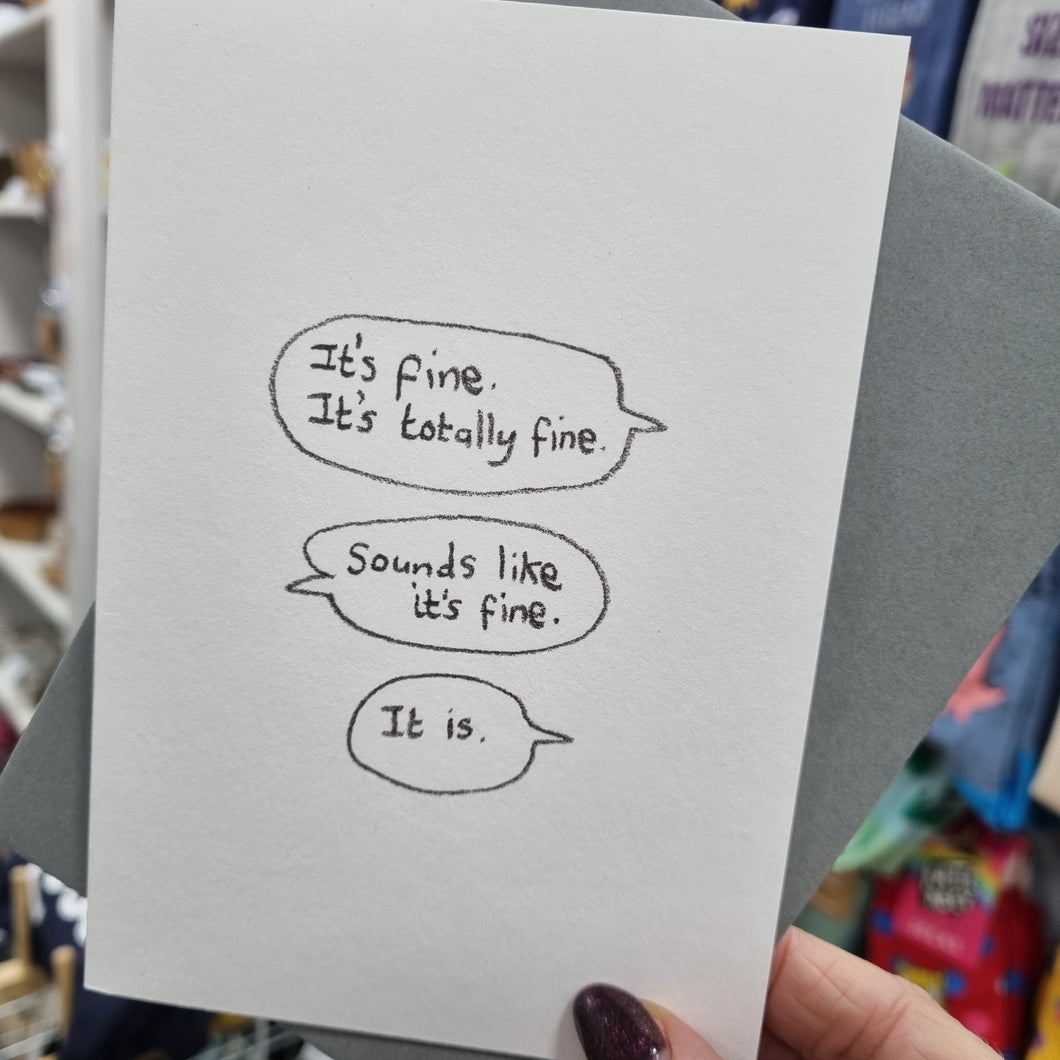 It's fine.
It's totally fine.
Sounds like
it's fine.
It is.